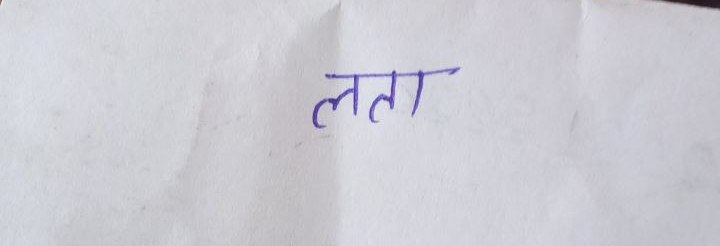 लता